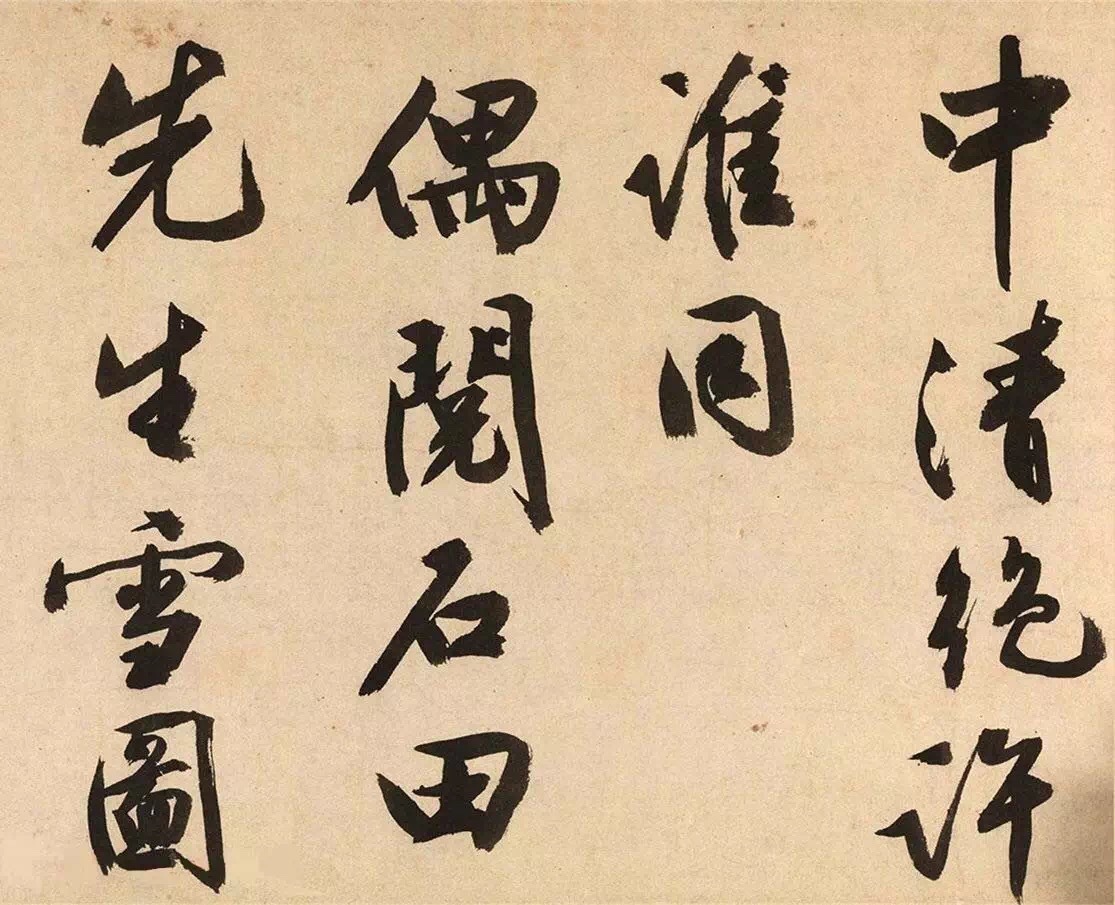 中清絶許
誰同
偶閱石田
先生雪圖